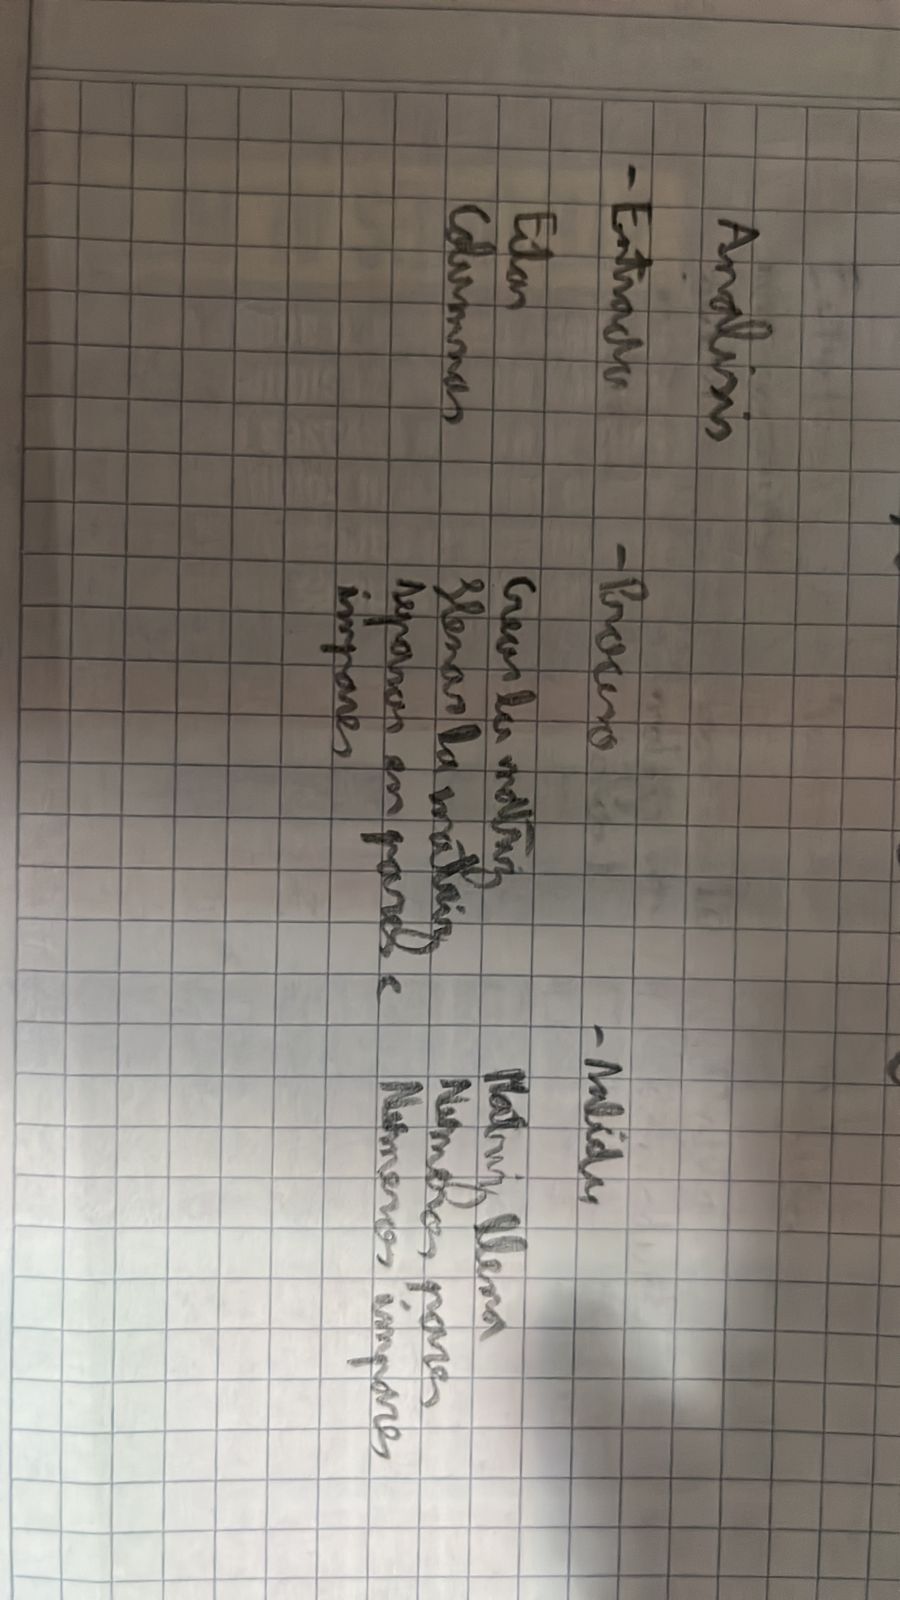 Analisis
- Entrada
Filas
Columnas
- Proceso
Crear la matriz
llenar la matriz
separar en pares e
impares
- Salida
Matriz llena
Numeros pares
Numeros impares